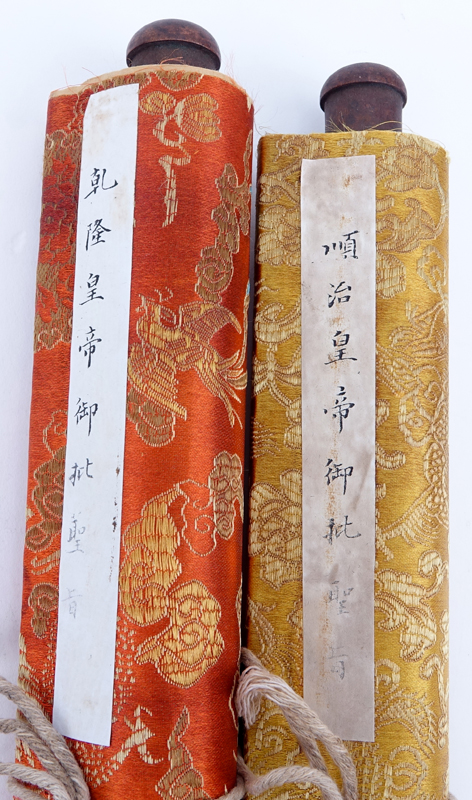 乾隆皇帝御批聖旨
順治皇帝御批聖旨